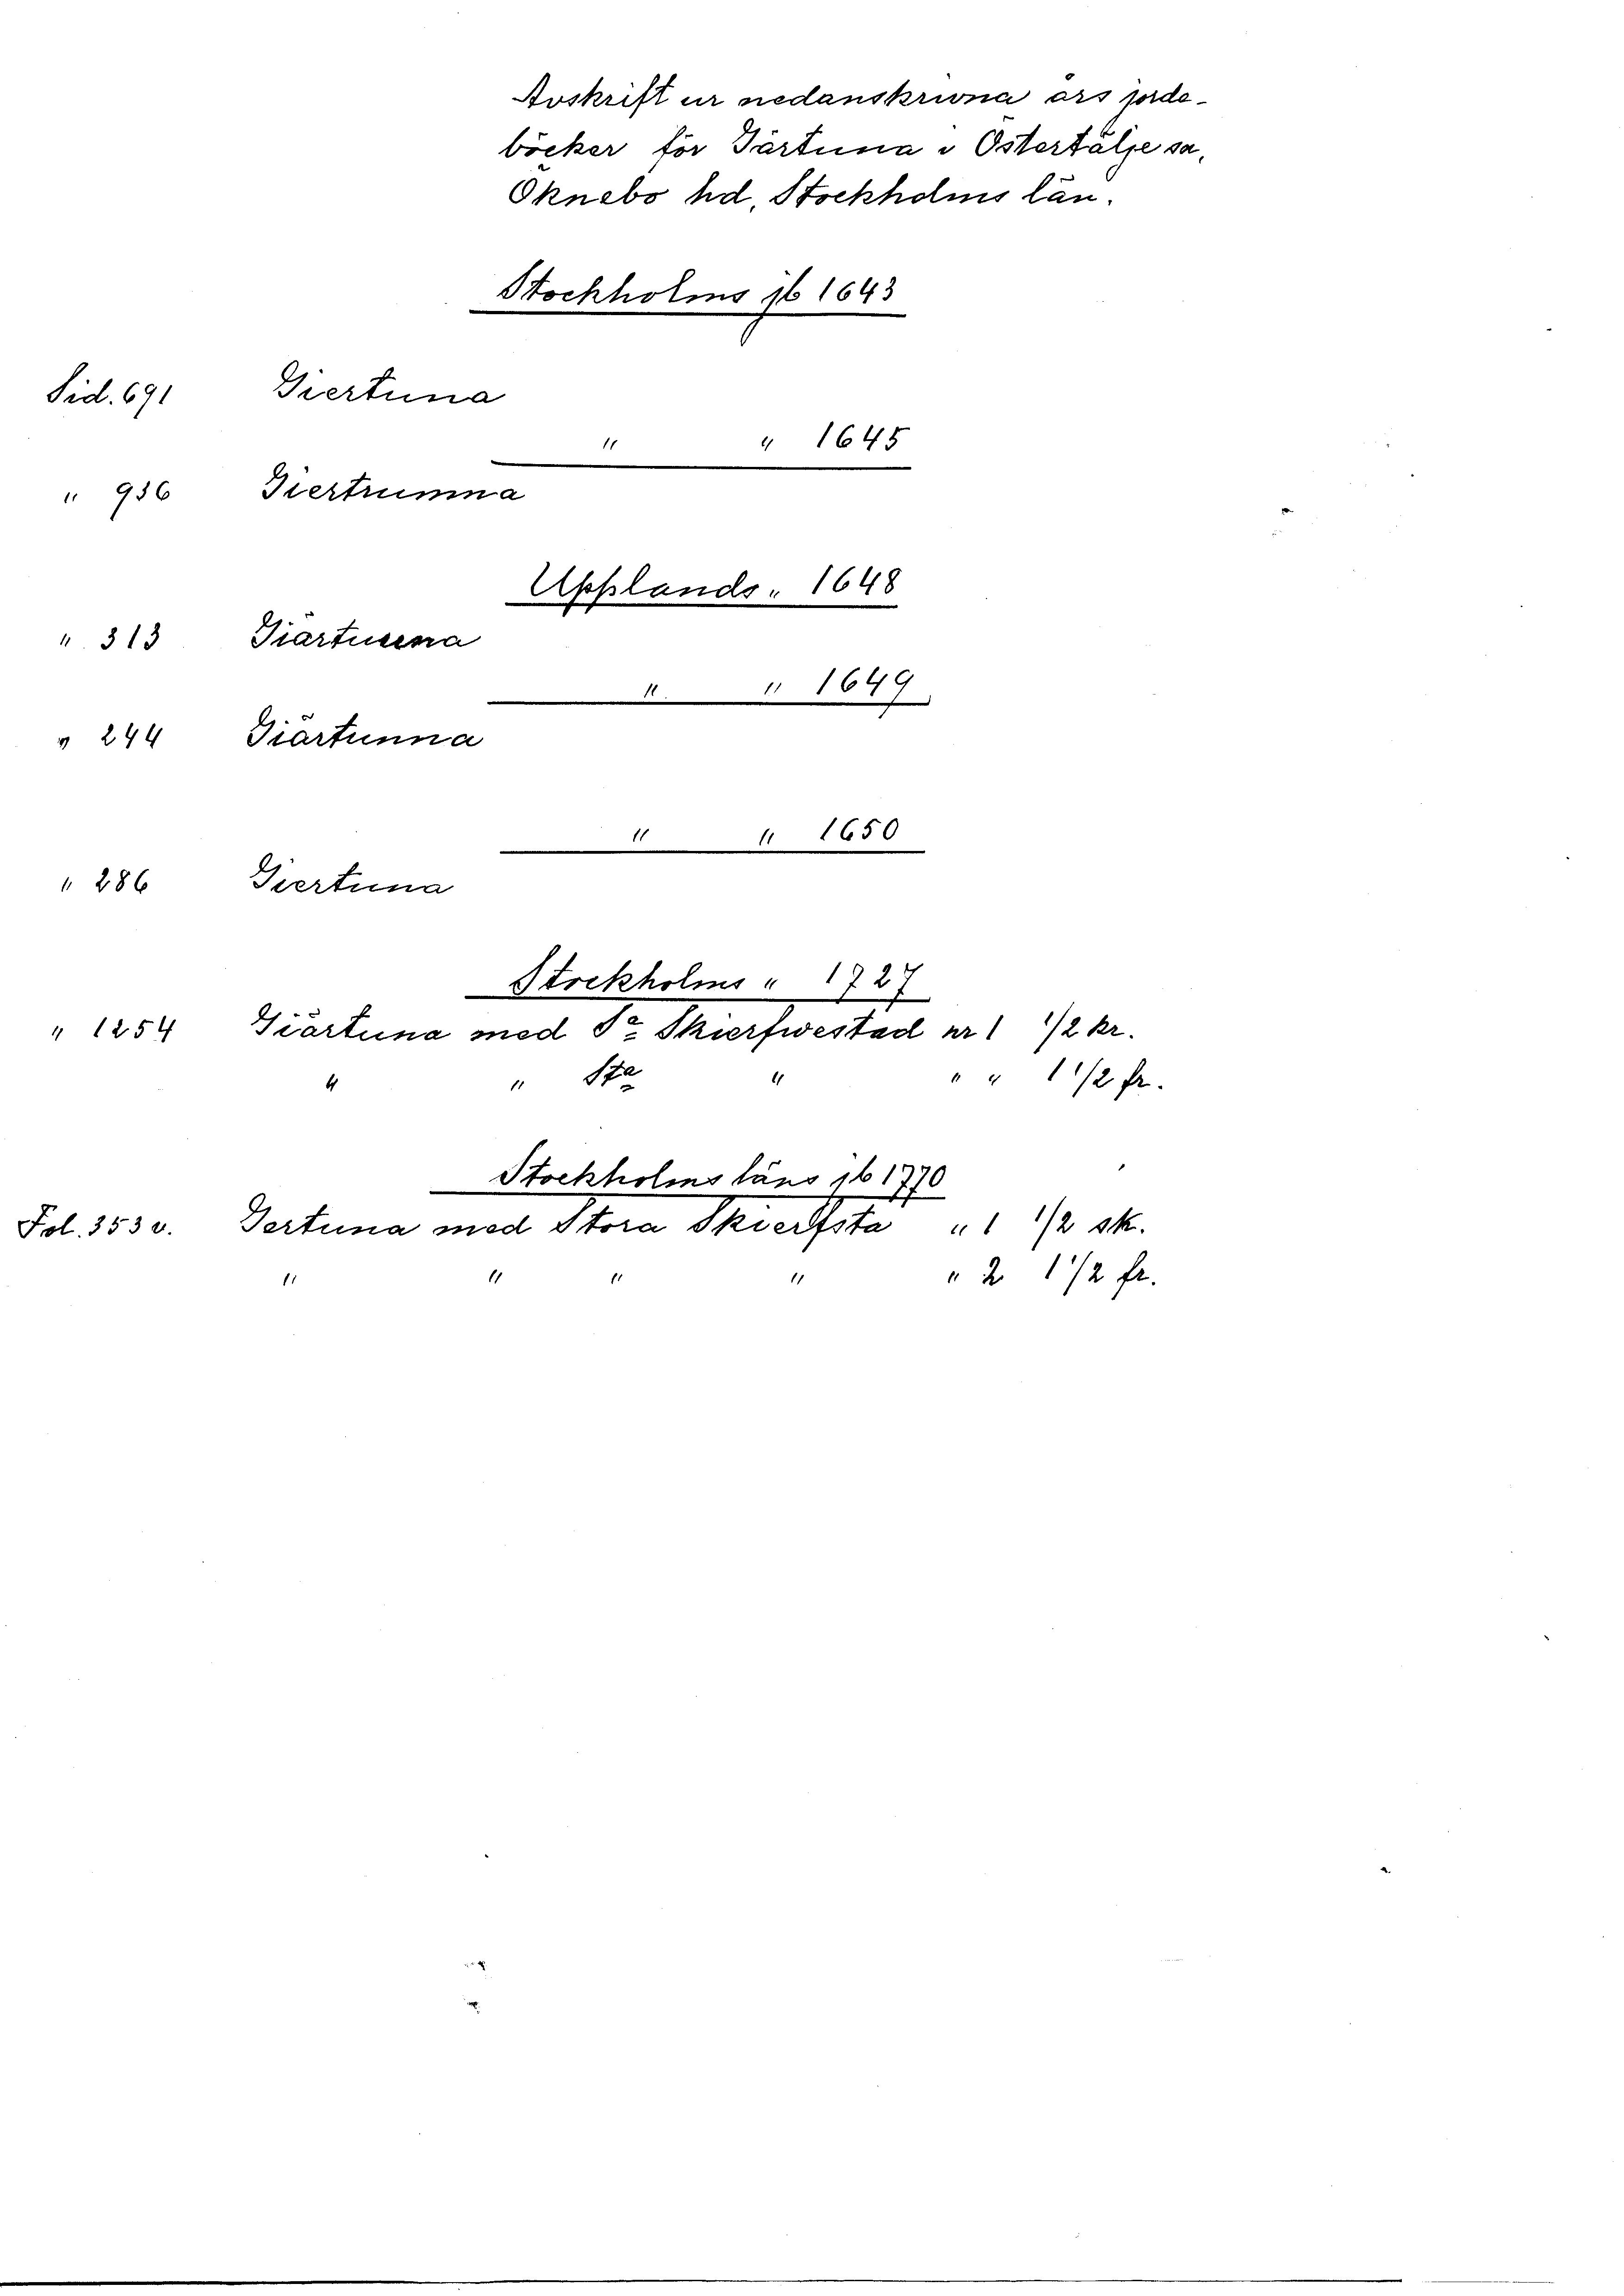 Avskrift ur nedanskrivna års jorde-
böcker för Järtuna i Östertälje sn,
Öknebo hd, Stockholms län.
Stockholms jb 1643
Sid. 691 Giertuna
" " 1645
" 936 Giertrumna
Upplands " 1648
" 313 Giärtuna
" " 1649
" 244 Giärtunna
" " 1650
" 286 Giertuna
Stockholms " 1727
" 1254 Giärtuna med Sra Skierfwestad nr 1 1/2 kr.
" " Sta " " " 1 1/2 fr.
Stockholms läns jb 1770
Fol. 353 v. Jertuna med Stora Skierfsta " 1 1/2 sk.
" " " " " 2 1 1/2 fr.